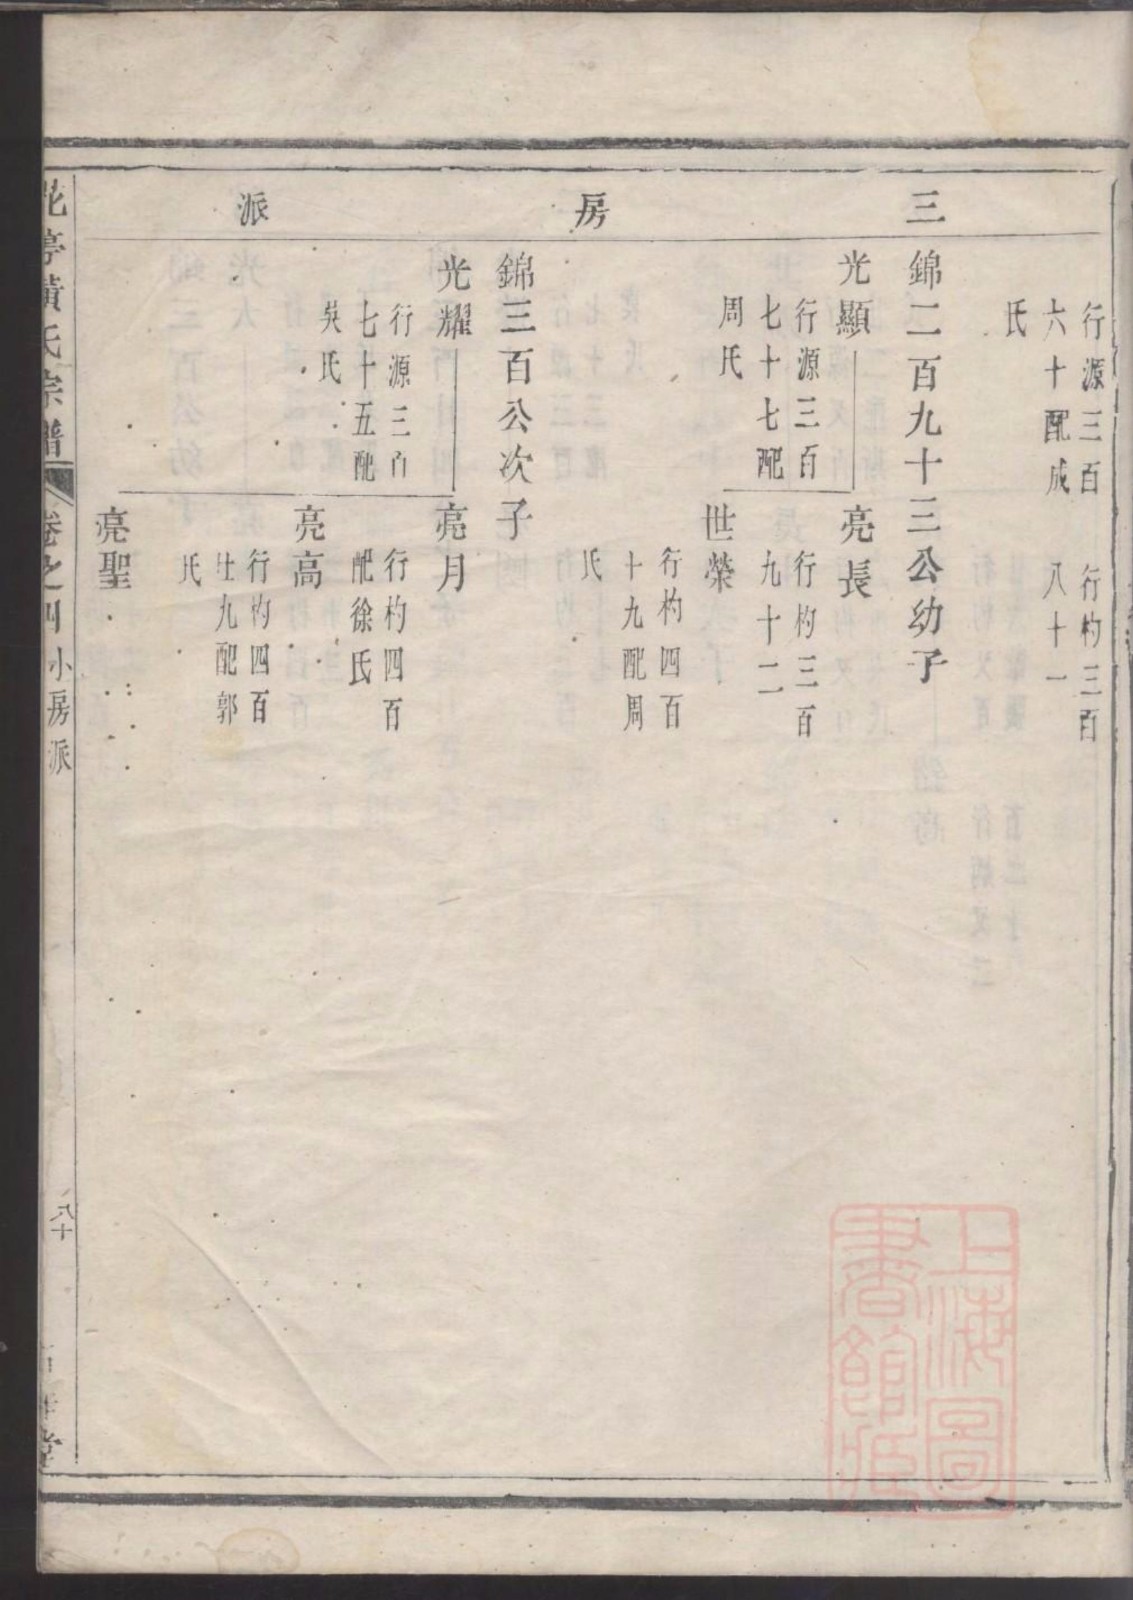 三房派
行源三百
六十配成
氏
行杓三百
八十一
錦二百九十三公幼子
光顯
行源三百
七十七配
周氏
亮長
行杓三百
九十二
世榮
行杓四百
十九配周
氏
錦三百公次子
光耀
行源三百
七十五配
吳氏
亮月
行杓四百
配徐氏
亮高
行杓四百
廿九配郭
氏
亮聖
花亭黃氏宗譜
卷之四
小房派
八十
堂
上海圖
書館藏